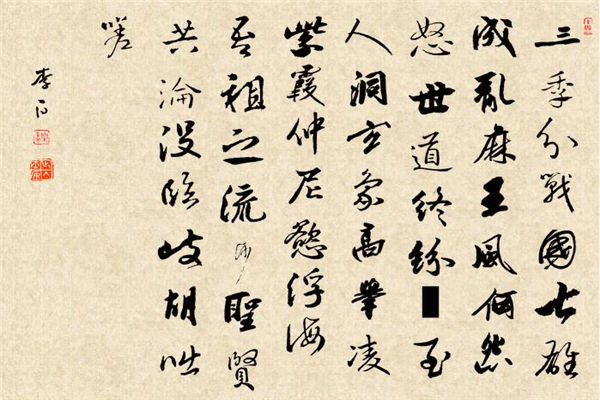 三季分戰國七雄
成亂麻王風何怨
怒世道終紛至
人洞玄象高舉凌
紫霞仲尼慾浮海
吾祖之流沙聖賢
共淪沒臨岐胡咄
嗟
李白